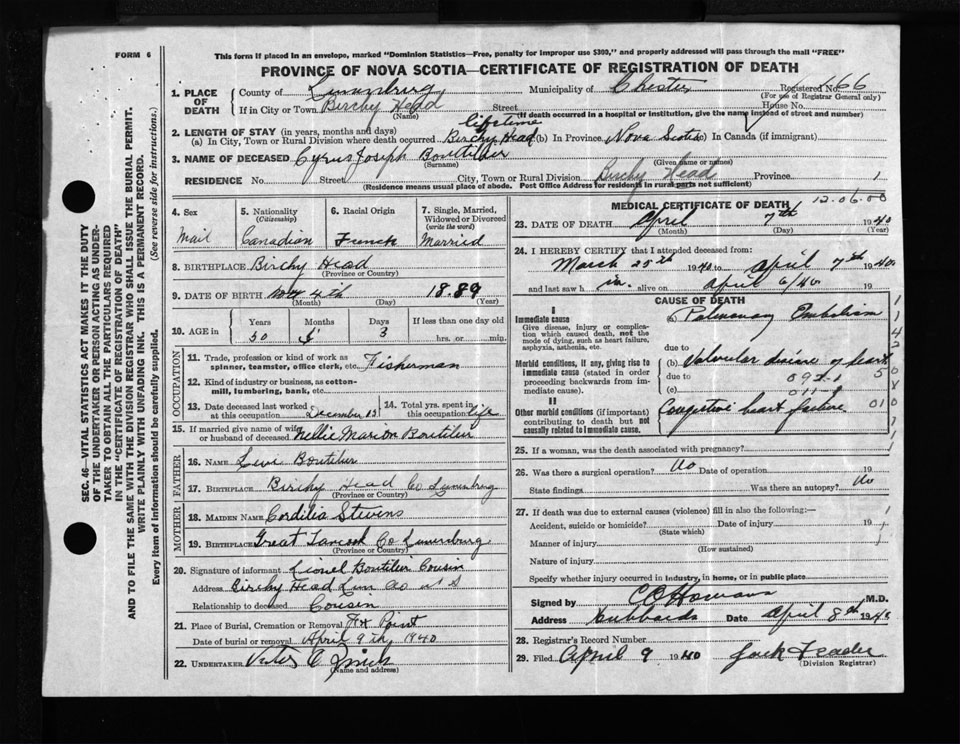 FORM 6
This form if placed in an envelope, marked "Dominion Statistics—Free, penalty for improper use $300," and properly addressed will pass through the mail "FREE"
PROVINCE OF NOVA SCOTIA—CERTIFICATE OF REGISTRATION OF DEATH
1. PLACE OF DEATH County of Lunenburg Municipality of Chester Registered No. 66
(For use of Registrar General only)
If in City or Town Birchy Head Street House No.
(Name) (If death occurred in a hospital or institution, give the name instead of street and number)
2. LENGTH OF STAY (in years, months and days) lifetime
(a) In City, Town or Rural Division where death occurred Birchy Head (b) In Province Nova Scotia (c) In Canada (if immigrant)
3. NAME OF DECEASED Cyrus Joseph Boutilier
(Surname) (Given name or names)
RESIDENCE No. Street City, Town or Rural Division Birchy Head Province 1
(Residence means usual place of abode. Post Office Address for residents in rural parts not sufficient)
4. Sex 5. Nationality (Citizenship) 6. Racial Origin 7. Single, Married, Widowed or Divorced (write the word)
Mail Canadian French Married
8. BIRTHPLACE Birchy Head
(Province or Country)
9. DATE OF BIRTH 4th 1889
(Month) (Day) (Year)
10. AGE in Years Months Days If less than one day old
50 3 hrs. or min.
OCCUPATION
11. Trade, profession or kind of work as spinner, teamster, office clerk, etc. Fisherman
12. Kind of industry or business, as cotton-mill, lumbering, bank, etc.
13. Date deceased last worked at this occupation December 13 14. Total yrs. spent in this occupation life
15. If married give name of wife or husband of deceased Nellie Marion Boutilier
FATHER
16. NAME Levi Boutilier
17. BIRTHPLACE Birchy Head Co Lunenburg
(Province or Country)
MOTHER
18. MAIDEN NAME Cordilia Stevens
19. BIRTHPLACE Great Tancook Co Lunenburg
(Province or Country)
20. Signature of informant Lionel Boutilier Cousin
Address Birchy Head Lun Co N S
Relationship to deceased Cousin
21. Place of Burial, Cremation or Removal Fx Point
Date of burial or removal April 9th, 1940
22. UNDERTAKER
(Name and address)
MEDICAL CERTIFICATE OF DEATH
12-06-00
23. DATE OF DEATH April 7th 1940
(Month) (Day) (Year)
24. I HEREBY CERTIFY that I attended deceased from:
March 25th 1940 to April 7th 1940
and last saw him alive on April 6/40 19
CAUSE OF DEATH
I
Immediate cause (a) Pulmonary Embolism
Give disease, injury or complication which caused death, not the mode of dying, such as heart failure, asphyxia, asthenia, etc.
due to
Morbid conditions, if any, giving rise to immediate cause (stated in order proceeding backwards from immediate cause).
(b) Valvular disease of heart
due to
(c)
II
Other morbid conditions (if important) contributing to death but not causally related to immediate cause.
Congestive heart failure
25. If a woman, was the death associated with pregnancy?
26. Was there a surgical operation? No Date of operation 19
State findings Was there an autopsy? No
27. If death was due to external causes (violence) fill in also the following:—
Accident, suicide or homicide? Date of injury 19
(State which)
Manner of injury
(How sustained)
Nature of injury
Specify whether injury occurred in industry, in home, or in public place
Signed by M.D.
Address Hubbards Date April 8th 1940
28. Registrar's Record Number
29. Filed April 9 1940 Jack Feader
(Division Registrar)
SEC. 46—VITAL STATISTICS ACT MAKES IT THE DUTY
OF THE UNDERTAKER OR PERSON ACTING AS UNDER-
TAKER TO OBTAIN ALL THE PARTICULARS REQUIRED
IN THE "CERTIFICATE OF REGISTRATION OF DEATH"
AND TO FILE THE SAME WITH THE DIVISION REGISTRAR WHO SHALL ISSUE THE BURIAL PERMIT.
WRITE PLAINLY WITH UNFADING INK. THIS IS A PERMANENT RECORD.
Every item of information should be carefully supplied. (See reverse side for instructions.)